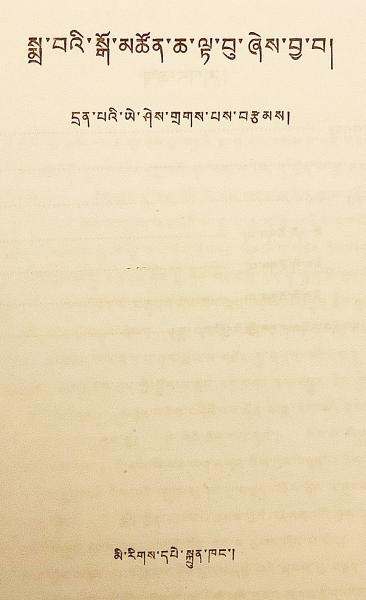 སྨྲ་བའི་སྒོ་མཚོན་ཆ་ལྟ་བུ་ཞེས་བྱ་བ།
དྲན་པའི་ཡེ་ཤེས་གྲགས་པས་བརྩམས།
མི་རིགས་དཔེ་སྐྲུན་ཁང་།